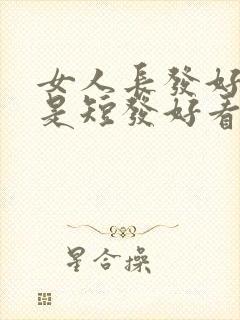 女人長發好
是短發好看
星合操